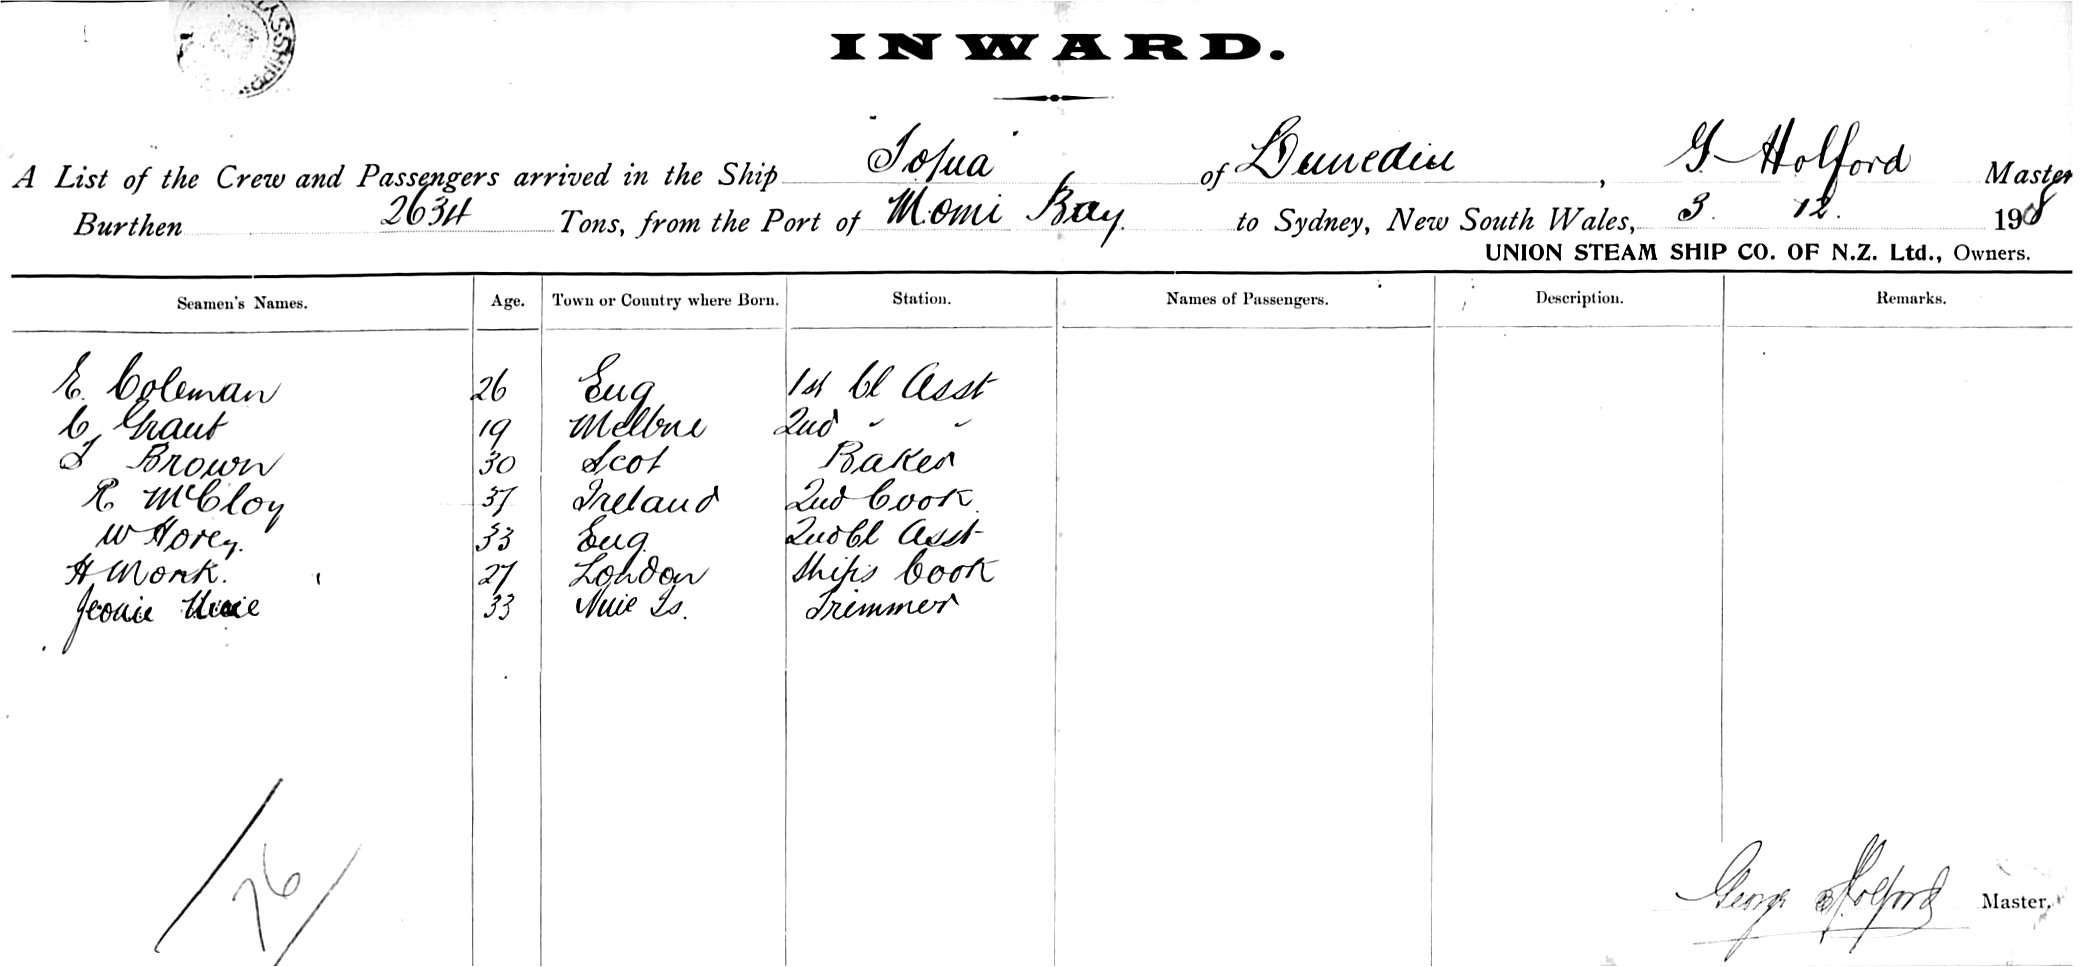 INWARD.
A List of the Crew and Passengers arrived in the Ship "Tofua" of Dunedin, G. Holford Master
Burthen 2634 Tons, from the Port of Momi Bay. to Sydney, New South Wales, 3. 12. 1908
UNION STEAM SHIP CO. OF N.Z. Ltd., Owners.
Seamen's Names. Age. Town or Country where Born. Station. Names of Passengers. Description. Remarks.
E. Coleman 26 Eng 1st Cl Asst
C Grant 19 Melbne 2nd " "
Brown 30 Scot Baker
R McCloy 37 Ireland 2nd Cook
W Horey. 33 Eng. 2nd Cl Asst
H Monk. 27 London Ships Cook
Niue Is. 33 Trimmer
26
George Holford Master.